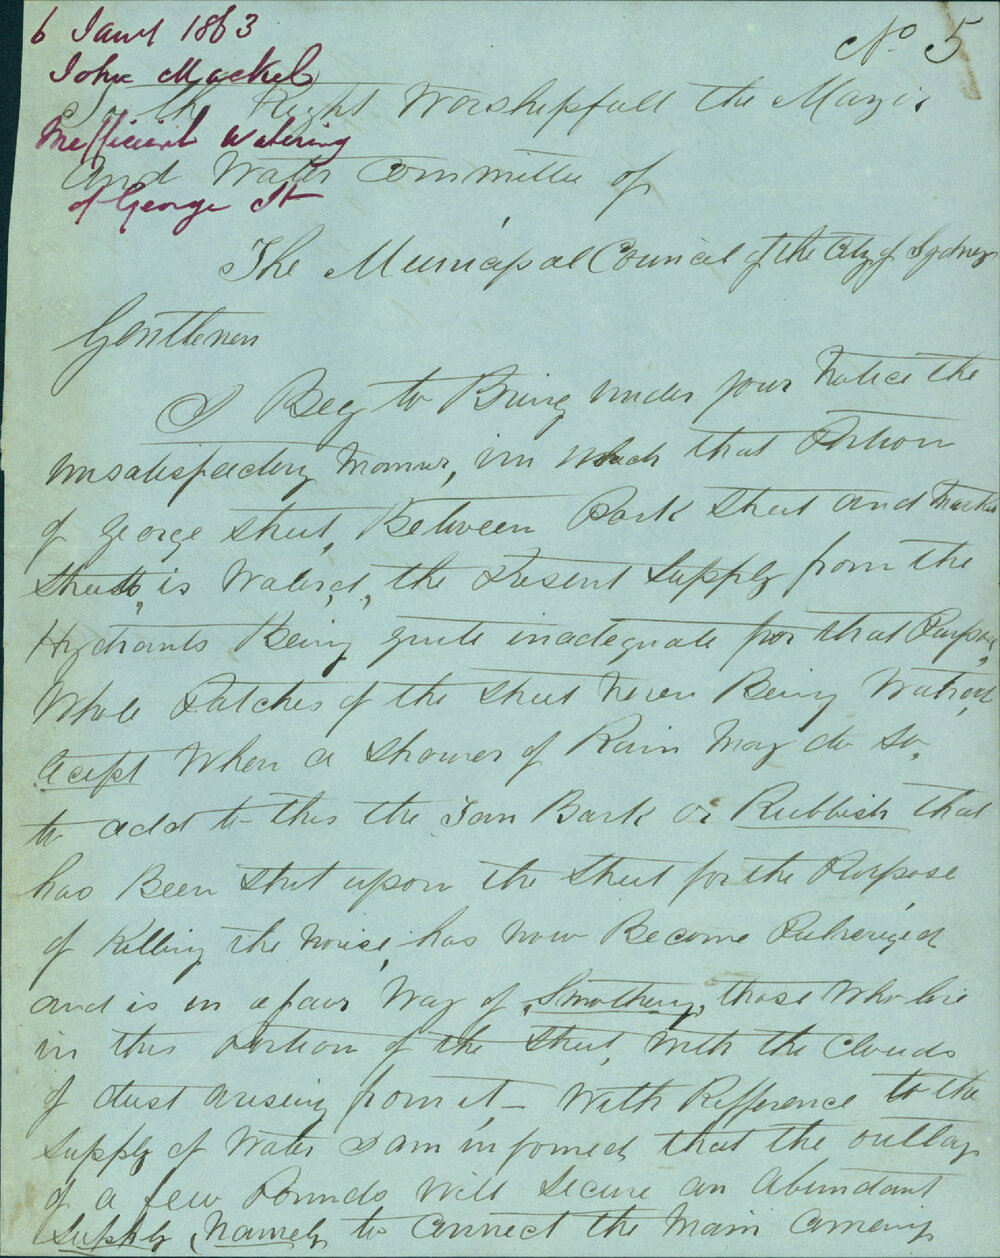 6 Jany 1863
John Mackel
Inefficient watering
of George St
No 5
To the Right Worshipfull the Mayor
And Water Committee of
The Municipal Council of the City of Sydney
Gentlemen
I Beg to Bring under your Notice the
unsatisfactory Manner, in which that Portion
of George Street, Between Park Street and Market
Streets, is Watered, the Present Supply from the
Hydrants Being quite inadequate for that Purpose,
Whole Patches of the Street Never Being Watered,
Acept When a Shower of Rain May do So,
to add to this the Tan Bark or Rubbish that
has Been Shot upon the Street for the Purpose
of Killing the Noise, has now Become Pulverized
and is in a fair Way of "Smothering" those Who live
in this Portion of the Street, With the Clouds
of dust arising from it – With Refference to the
Supply of Water I am informed that the outlay
of a few Pounds Will Secure an Abundant
Supply, Namely, to Connect the Main Comeing